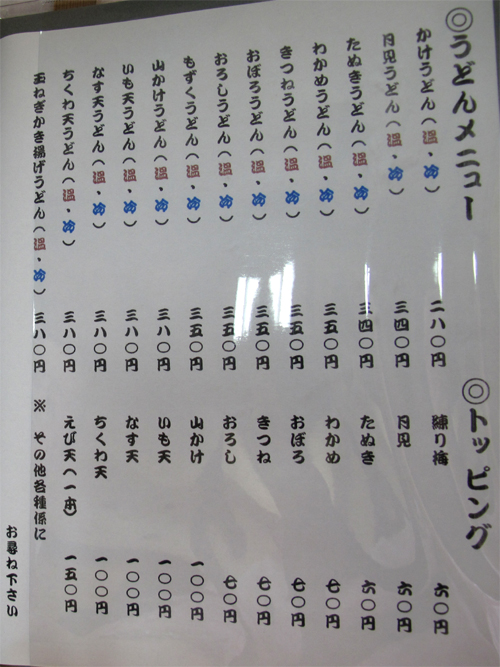 ◎うどんメニュー
かけうどん(温・冷) 二八〇円
月見うどん(温・冷) 三四〇円
たぬきうどん(温・冷) 三四〇円
わかめうどん(温・冷) 三五〇円
きつねうどん(温・冷) 三五〇円
おぼろうどん(温・冷) 三五〇円
おろしうどん(温・冷) 三五〇円
もずくうどん(温・冷) 三五〇円
山かけうどん(温・冷) 三八〇円
いも天うどん(温・冷) 三八〇円
なす天うどん(温・冷) 三八〇円
ちくわ天うどん(温・冷) 三八〇円
玉ねぎかき揚げうどん(温・冷) 三八〇円
◎トッピング
練り梅 六〇円
月見 六〇円
たぬき 六〇円
わかめ 七〇円
おぼろ 七〇円
きつね 七〇円
おろし 七〇円
山かけ 一〇〇円
いも天 一〇〇円
なす天 一〇〇円
ちくわ天 一〇〇円
えび天(一本) 一五〇円
※ その他各種係に
お尋ね下さい